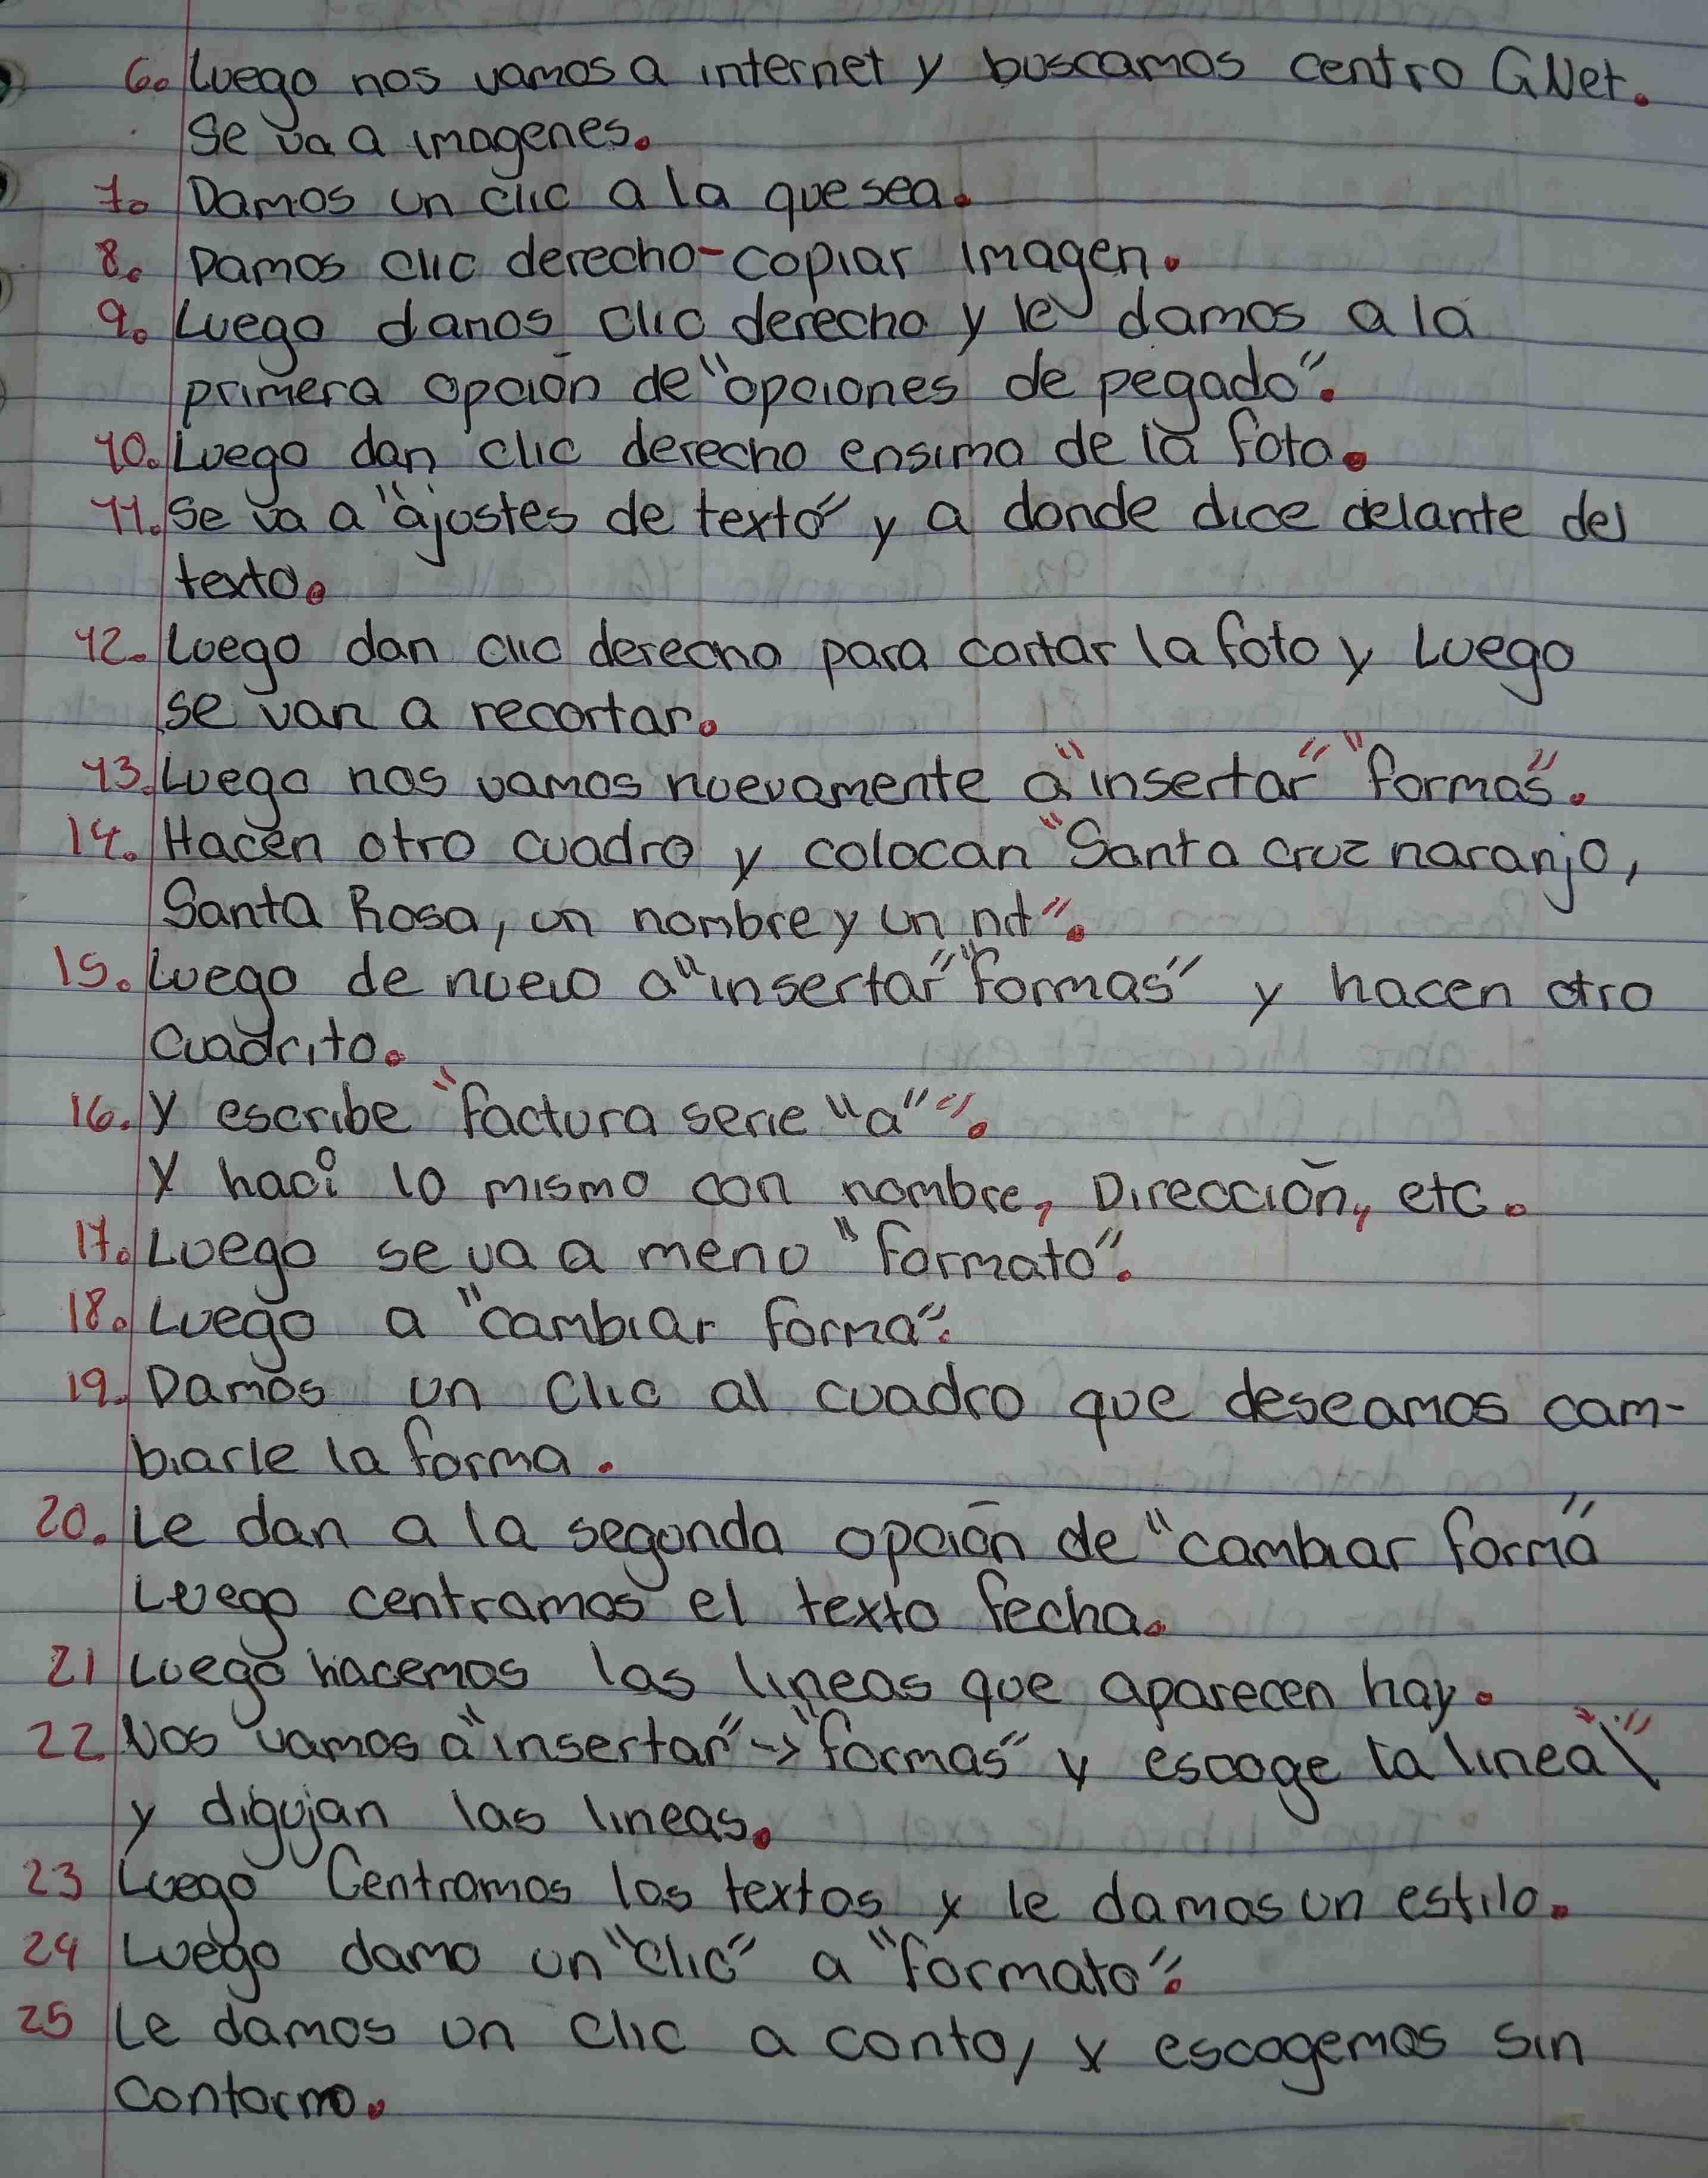 6. Luego nos vamos a internet y buscamos centro GNet.
Se va a imagenes.
7. Damos un clic a la que sea.
8. Damos clic derecho-copiar imagen.
9. Luego danos clic derecho y le damos a la
primera opción de "opciones de pegado".
10. Luego dan clic derecho ensima de la foto.
11. Se va a "ajustes de texto" y a donde dice delante del
texto.
12. Luego dan clic derecho para cortar la foto y Luego
se van a recortar.
13. Luego nos vamos nuevamente a "insertar" "formas".
14. Hacen otro cuadro y colocan "Santa cruz naranjo,
Santa Rosa, un nombre y un nit".
15. Luego de nuevo a "insertar" "formas" y hacen otro
cuadrito.
16. Y escribe "factura serie "a"".
Y haci lo mismo con nombre, Dirección, etc.
17. Luego se va a menu "formato".
18. Luego a "cambiar forma".
19. Damos un clic al cuadro que deseamos cam-
biarle la forma.
20. Le dan a la segunda opción de "cambiar forma"
Luego centramos el texto fecha.
21 Luego hacemos las lineas que aparecen hay.
22 Nos vamos a "insertar" -> "formas" y escoge la linea "\"
y digujan las lineas.
23 Luego Centramos los textos y le damos un estilo.
24 Luego damo un "clic" a "formato".
25 Le damos un clic a conto, y escogemos sin
contorno.